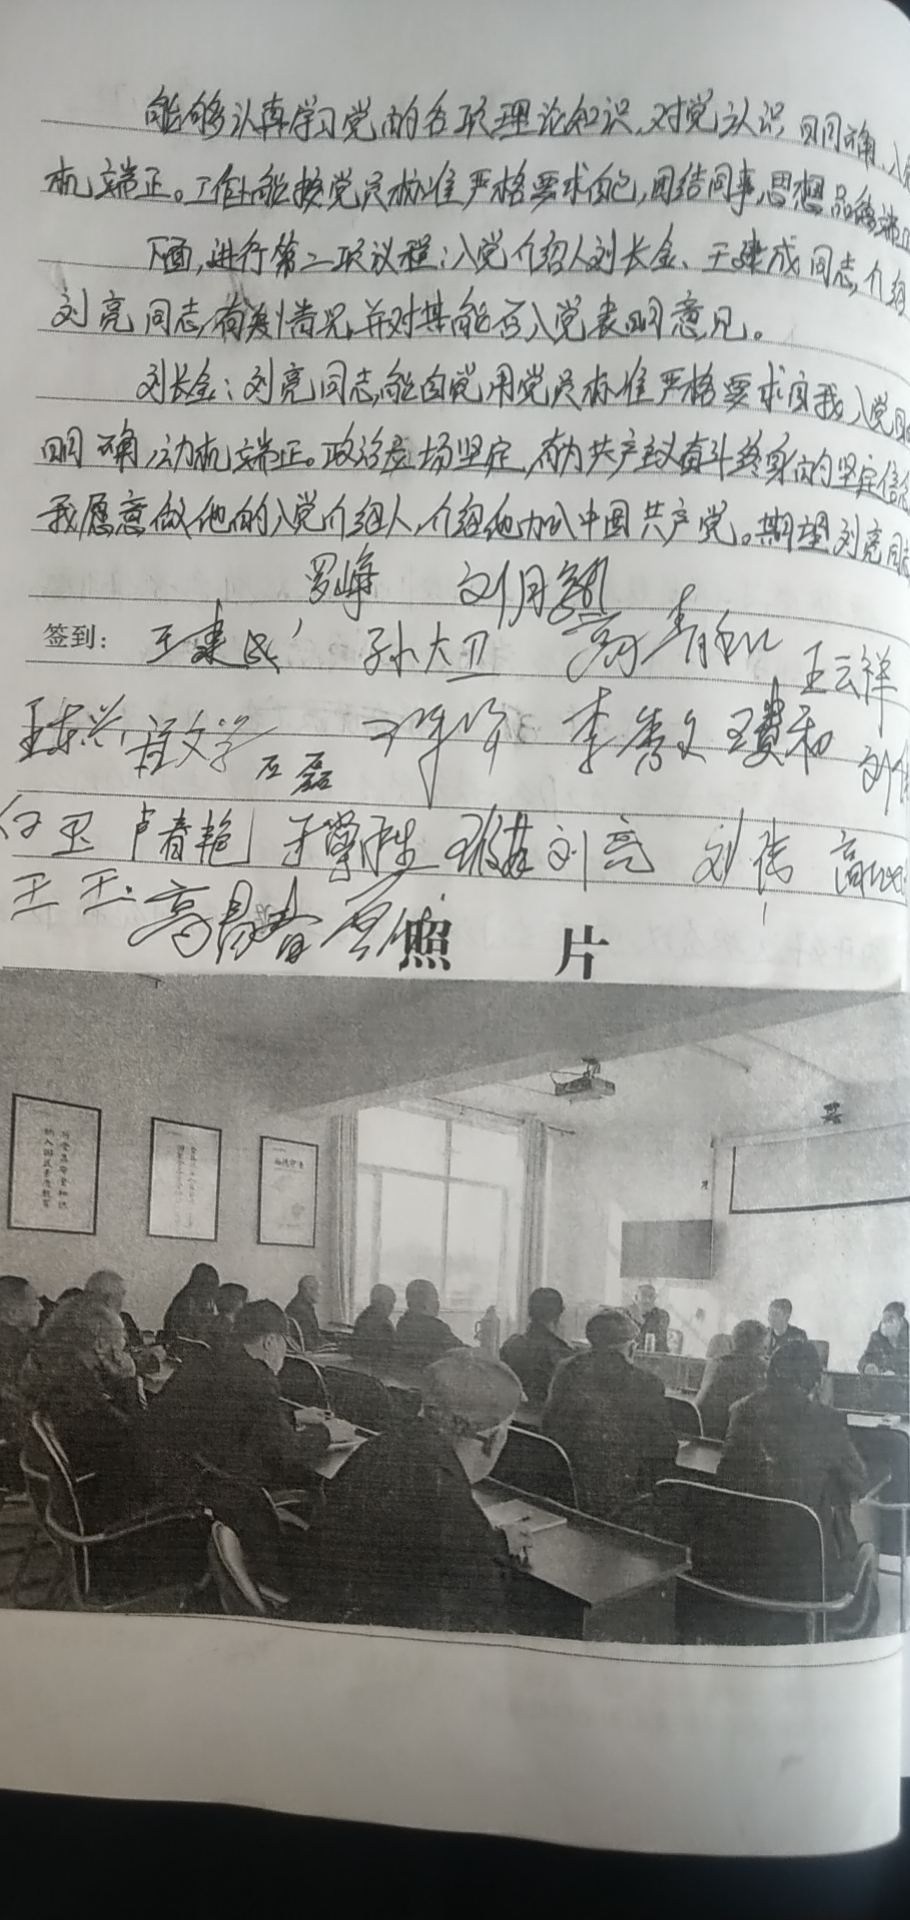 能够认真学习党的各项理论知识,对党认识明确,入党
机端正。工作能按党员标准严格要求自己,团结同事,思想品德端正
下面,进行第二项议程:入党介绍人刘长金、王建成同志,介绍
刘亮同志有关情况,并对其能否入党表明意见。
刘长金:刘亮同志,能自觉用党员标准严格要求自我,入党目
明确,动机端正。政治立场坚定,有为共产主义奋斗终身的坚定信念
我愿意做他的入党介绍人,介绍他加入中国共产党。期望刘亮同志
罗峰 刘月
签到: 王建成 孙大卫 王云祥
王东兴 文学 石磊 李秀文 王贵和 刘
卫 卢春艳 刘亮 刘伟 高
王玉 高易春
照 片